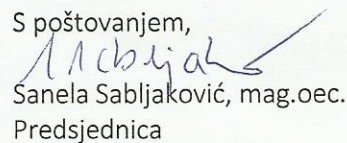 S poštovanjem,
Sanela Sabljaković, mag.oec.
Predsjednica